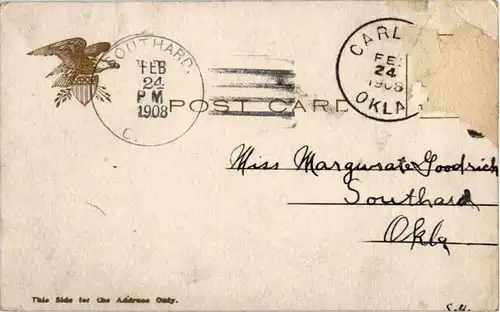 SOUTHARD,
FEB
24
PM
1908
CARL
FE
24
1908
OKLA
POST CARD
Miss Margurate Goodrich
Southard
Okla
This Side for the Address Only.